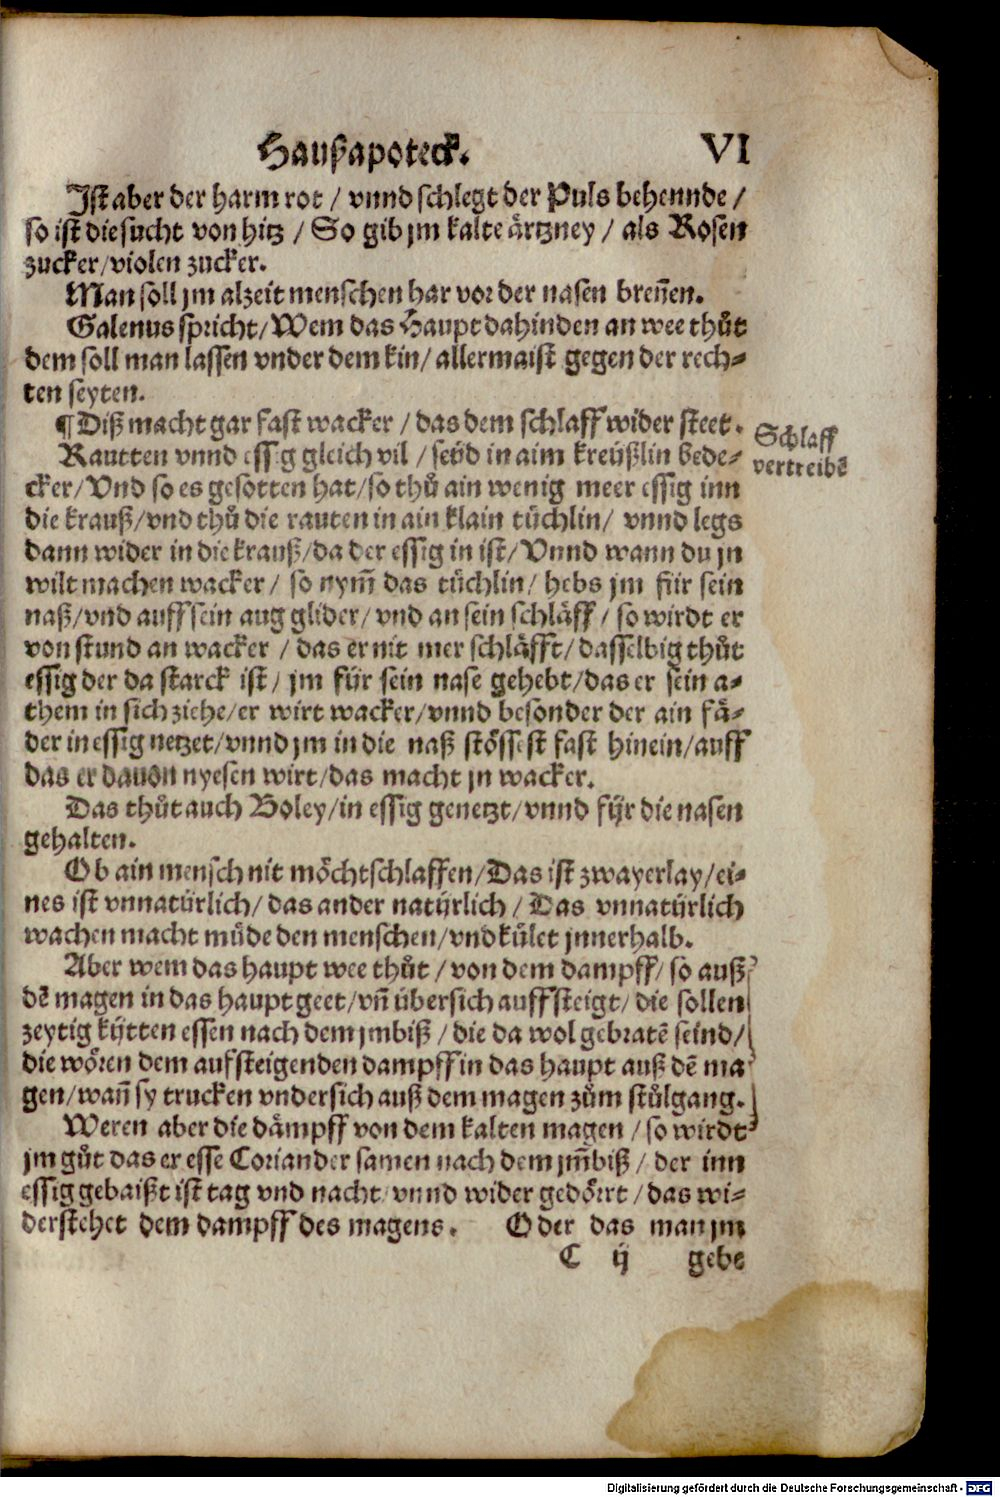 Haußapoteck. VI
Ist aber der harm rot / vnnd schlegt der Puls behennde /
so ist die sucht von hitz / So gib jm kalte ärtzney / als Rosen
zucker/violen zucker.
Man soll jm alzeit menschen har vor der nasen breñen.
Galenus spricht/Wem das Haupt dahinden an wee thůt
dem soll man lassen vnder dem kin/ allermaist gegen der rech⸗
ten seyten.
¶ Diß macht gar fast wacker / das dem schlaff wider steet.
Schlaff
vertreibẽ
Rautten vnnd essig gleich vil / seüd in aim kreüßlin bede⸗
cker/Vnd so es gesotten hat/so thů ain wenig meer essig inn
die krauß/vnd thů die rauten in ain klain tüchlin/ vnnd legs
dann wider in die krauß/da der essig in ist/Vnnd wann du jn
wilt machen wacker / so nym̃ das tüchlin/ hebs jm für sein
naß/vnd auff sein aug glider/ vnd an sein schläff / so wirdt er
von stund an wacker / das er nit mer schläfft/dasselbig thůt
essig der da starck ist/ jm für sein nase gehebt/das er sein a⸗
them in sich ziehe/er wirt wacker/vnnd besonder der ain fä⸗
der in essig netzet/vnnd jm in die naß stössest fast hinein/auff
das er dauon nyesen wirt/das macht jn wacker.
Das thůt auch Boley/in essig genetzt/vnnd für die nasen
gehalten.
Ob ain mensch nit möcht schlaffen/Das ist zwayerlay/ei⸗
nes ist vnnatürlich/ das ander natürlich / Das vnnatürlich
wachen macht müde den menschen/vnd kület jnnerhalb.
Aber wem das haupt wee thůt / von dem dampff/ so auß
dẽ magen in das haupt geet/vñ übersich auffsteigt/ die sollen
zeytig kütten essen nach dem jmbiß / die da wol gebratẽ seind/
die wören dem aufsteigenden dampff in das haupt auß dẽ ma
gen/wañ sy trucken vndersich auß dem magen zům stůlgang.
Weren aber die dämpff von dem kalten magen / so wirdt
jm gůt das er esse Coriander samen nach dem jm̃biß / der inn
essig gebaißt ist tag vnd nacht vnnd wider gedörrt / das wi⸗
derstehet dem dampff des magens. Oder das man jm
C ij gebe
Digitalisierung gefördert durch die Deutsche Forschungsgemeinschaft - DFG